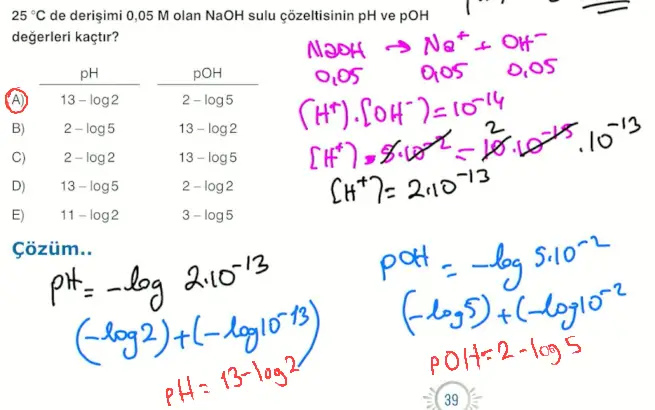 25 °C de derişimi 0,05 M olan NaOH sulu çözeltisinin pH ve pOH
değerleri kaçtır?
pH pOH
A) 13 – log2 2 – log5
B) 2 – log5 13 – log2
C) 2 – log2 13 – log5
D) 13 – log5 2 – log2
E) 11 – log2 3 – log5
NaOH → Na⁺ + OH⁻
0,05 0,05 0,05
[H⁺].[OH⁻] = 10⁻¹⁴
[H⁺].5.10⁻² = 10.10⁻¹⁵ 2 .10⁻¹³
[H⁺] = 2.10⁻¹³
Çözüm..
pH = -log 2.10⁻¹³
(-log2)+(-log10⁻¹³)
pH = 13-log2
pOH = -log 5.10⁻²
(-log5)+(-log10⁻²
pOH=2-log5
39